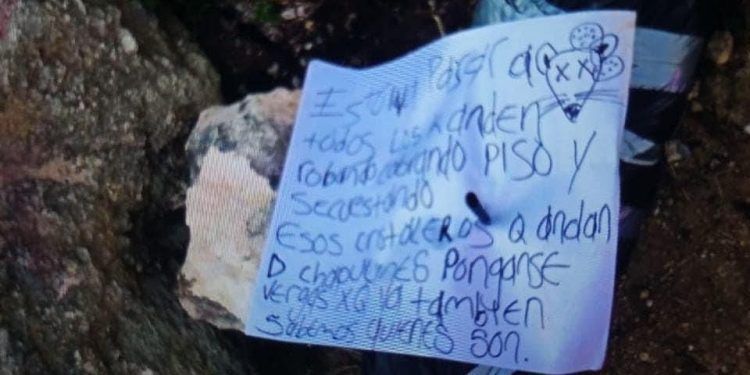 pasar a
todos los q anden
robando cobrando PISO y
secuestando
Esos cristaleros Q andan
D chapulines ponganse
vergas xq ya tambien
sabemos quienes son.